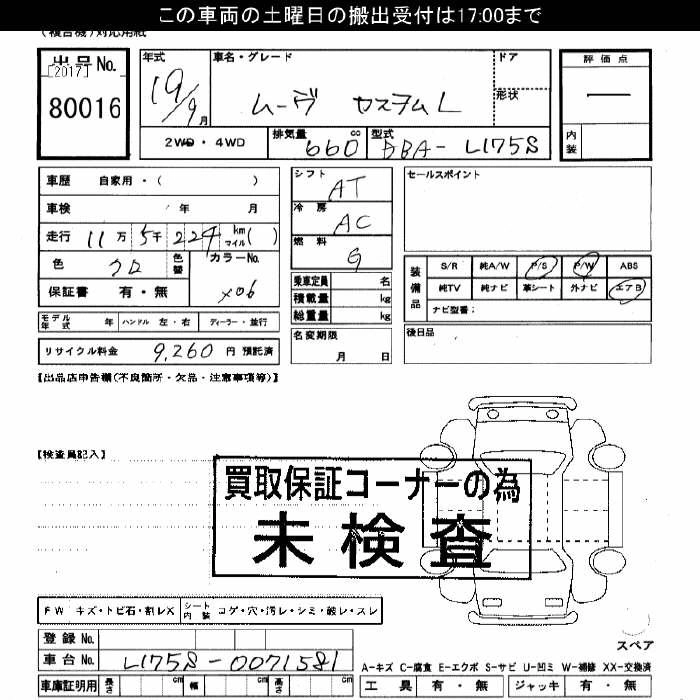 この車両の土曜日の搬出受付は17:00まで
(複合機)対応用紙
出品No. [2017] 80016
年式 19/9 月
車名・グレード ムーヴ カスタムL
ドア
形状
評価点 ―
内装
2WD・4WD
排気量 660 cc
型式 BBA-L175S
車歴 自家用・( )
車検 年 月
走行 11万5千224 km マイル( )
色 クロ 色替
カラーNo. X06
保証書 有・無
シフト AT
冷房 AC
燃料 G
乗車定員 名
積載量 kg
総重量 kg
セールスポイント
装備品
S/R 純A/W P/S P/W ABS
純TV 純ナビ 革シート 外ナビ エアB
ナビ型番:
モデル年式 年 ハンドル 左・右 ディーラー・並行
名変期限 月 日
後日品
リサイクル料金 9,260 円 預託済
【出品店申告欄(不良箇所・欠品・注意事項等)】
【検査員記入】
買取保証コーナーの為
未検査
FW キズ・トビ石・割レX シート内装 コゲ・穴・汚レ・シミ・破レ・スレ
登録No.
車台No. L175S-0071581
スペア
A-キズ C-腐食 E-エクボ S-サビ U-凹ミ W-補修 XX-交換済
車庫証明用 長さ cm 幅 cm 高さ cm
工具 有・無 ジャッキ 有・無